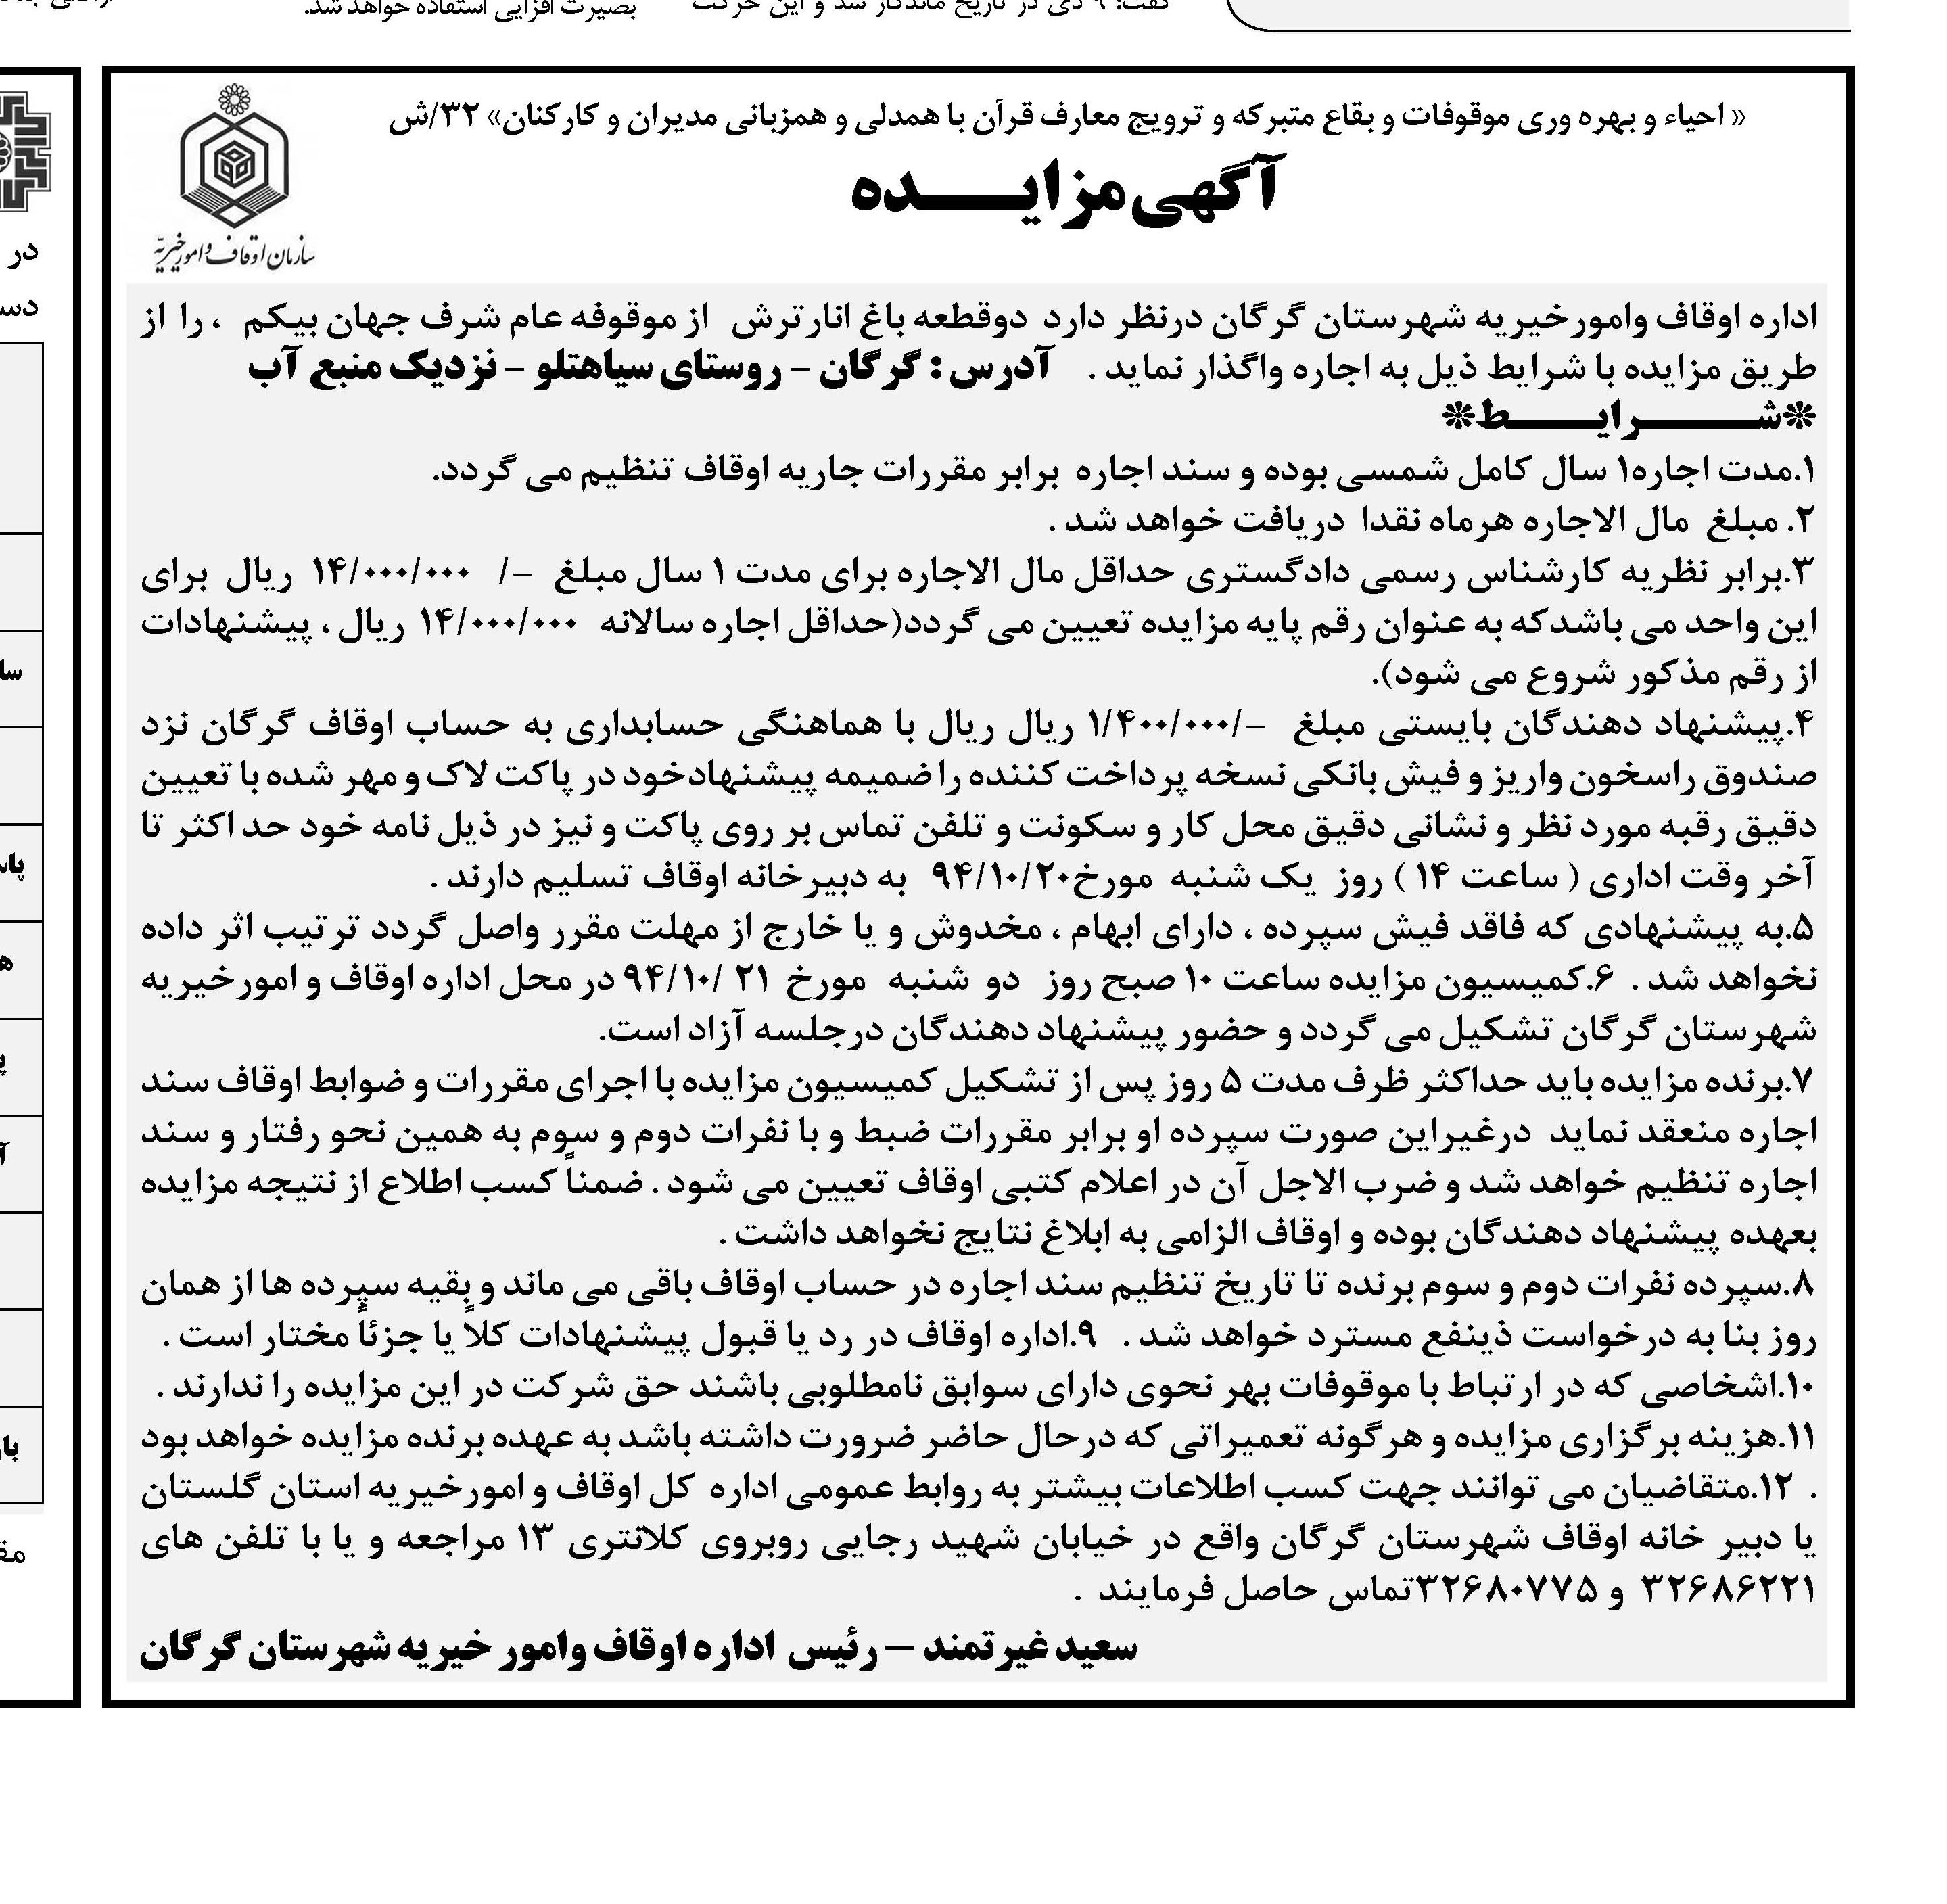 گفت: ۹ دی در تاریخ ماندگار شد و این حرکت
بصیرت افزایی استفاده خواهد شد.
« احیاء و بهره وری موقوفات و بقاع متبرکه و ترویج معارف قرآن با همدلی و همزبانی مدیران و کارکنان» ۳۲/ش
آگهی مزایـــــده
سازمان اوقاف و امور خیریّه
اداره اوقاف وامورخیریه شهرستان گرگان درنظر دارد دوقطعه باغ انارترش از موقوفه عام شرف جهان بیکم ، را از
طریق مزایده با شرایط ذیل به اجاره واگذار نماید . آدرس : گرگان – روستای سیاهتلو – نزدیک منبع آب
*شــــــرایـــــط*
۱.مدت اجاره۱ سال کامل شمسی بوده و سند اجاره برابر مقررات جاریه اوقاف تنظیم می گردد.
۲. مبلغ مال الاجاره هرماه نقدا دریافت خواهد شد .
۳.برابر نظریه کارشناس رسمی دادگستری حداقل مال الاجاره برای مدت ۱ سال مبلغ –/ ۱۴/۰۰۰/۰۰۰ ریال برای
این واحد می باشدکه به عنوان رقم پایه مزایده تعیین می گردد(حداقل اجاره سالانه ۱۴/۰۰۰/۰۰۰ ریال ، پیشنهادات
از رقم مذکور شروع می شود).
۴.پیشنهاد دهندگان بایستی مبلغ –/۱/۴۰۰/۰۰۰ ریال ریال با هماهنگی حسابداری به حساب اوقاف گرگان نزد
صندوق راسخون واریز و فیش بانکی نسخه پرداخت کننده را ضمیمه پیشنهادخود در پاکت لاک و مهر شده با تعیین
دقیق رقبه مورد نظر و نشانی دقیق محل کار و سکونت و تلفن تماس بر روی پاکت و نیز در ذیل نامه خود حد اکثر تا
آخر وقت اداری ( ساعت ۱۴ ) روز یک شنبه مورخ۹۴/۱۰/۲۰ به دبیرخانه اوقاف تسلیم دارند .
۵.به پیشنهادی که فاقد فیش سپرده ، دارای ابهام ، مخدوش و یا خارج از مهلت مقرر واصل گردد ترتیب اثر داده
نخواهد شد . ۶.کمیسیون مزایده ساعت ۱۰ صبح روز دو شنبه مورخ ۲۱ /۹۴/۱۰ در محل اداره اوقاف و امورخیریه
شهرستان گرگان تشکیل می گردد و حضور پیشنهاد دهندگان درجلسه آزاد است.
۷.برنده مزایده باید حداکثر ظرف مدت ۵ روز پس از تشکیل کمیسیون مزایده با اجرای مقررات و ضوابط اوقاف سند
اجاره منعقد نماید درغیراین صورت سپرده او برابر مقررات ضبط و با نفرات دوم و سوم به همین نحو رفتار و سند
اجاره تنظیم خواهد شد و ضرب الاجل آن در اعلام کتبی اوقاف تعیین می شود . ضمناً کسب اطلاع از نتیجه مزایده
بعهده پیشنهاد دهندگان بوده و اوقاف الزامی به ابلاغ نتایج نخواهد داشت .
۸.سپرده نفرات دوم و سوم برنده تا تاریخ تنظیم سند اجاره در حساب اوقاف باقی می ماند و بقیه سپرده ها از همان
روز بنا به درخواست ذینفع مسترد خواهد شد . ۹.اداره اوقاف در رد یا قبول پیشنهادات کلاً یا جزئاً مختار است .
۱۰.اشخاصی که در ارتباط با موقوفات بهر نحوی دارای سوابق نامطلوبی باشند حق شرکت در این مزایده را ندارند .
۱۱.هزینه برگزاری مزایده و هرگونه تعمیراتی که درحال حاضر ضرورت داشته باشد به عهده برنده مزایده خواهد بود
. ۱۲.متقاضیان می توانند جهت کسب اطلاعات بیشتر به روابط عمومی اداره کل اوقاف و امورخیریه استان گلستان
یا دبیر خانه اوقاف شهرستان گرگان واقع در خیابان شهید رجایی روبروی کلانتری ۱۳ مراجعه و یا با تلفن های
۳۲۶۸۶۲۲۱ و ۳۲۶۸۰۷۷۵تماس حاصل فرمایند .
سعید غیرتمند – رئیس اداره اوقاف وامور خیریه شهرستان گرگان
در